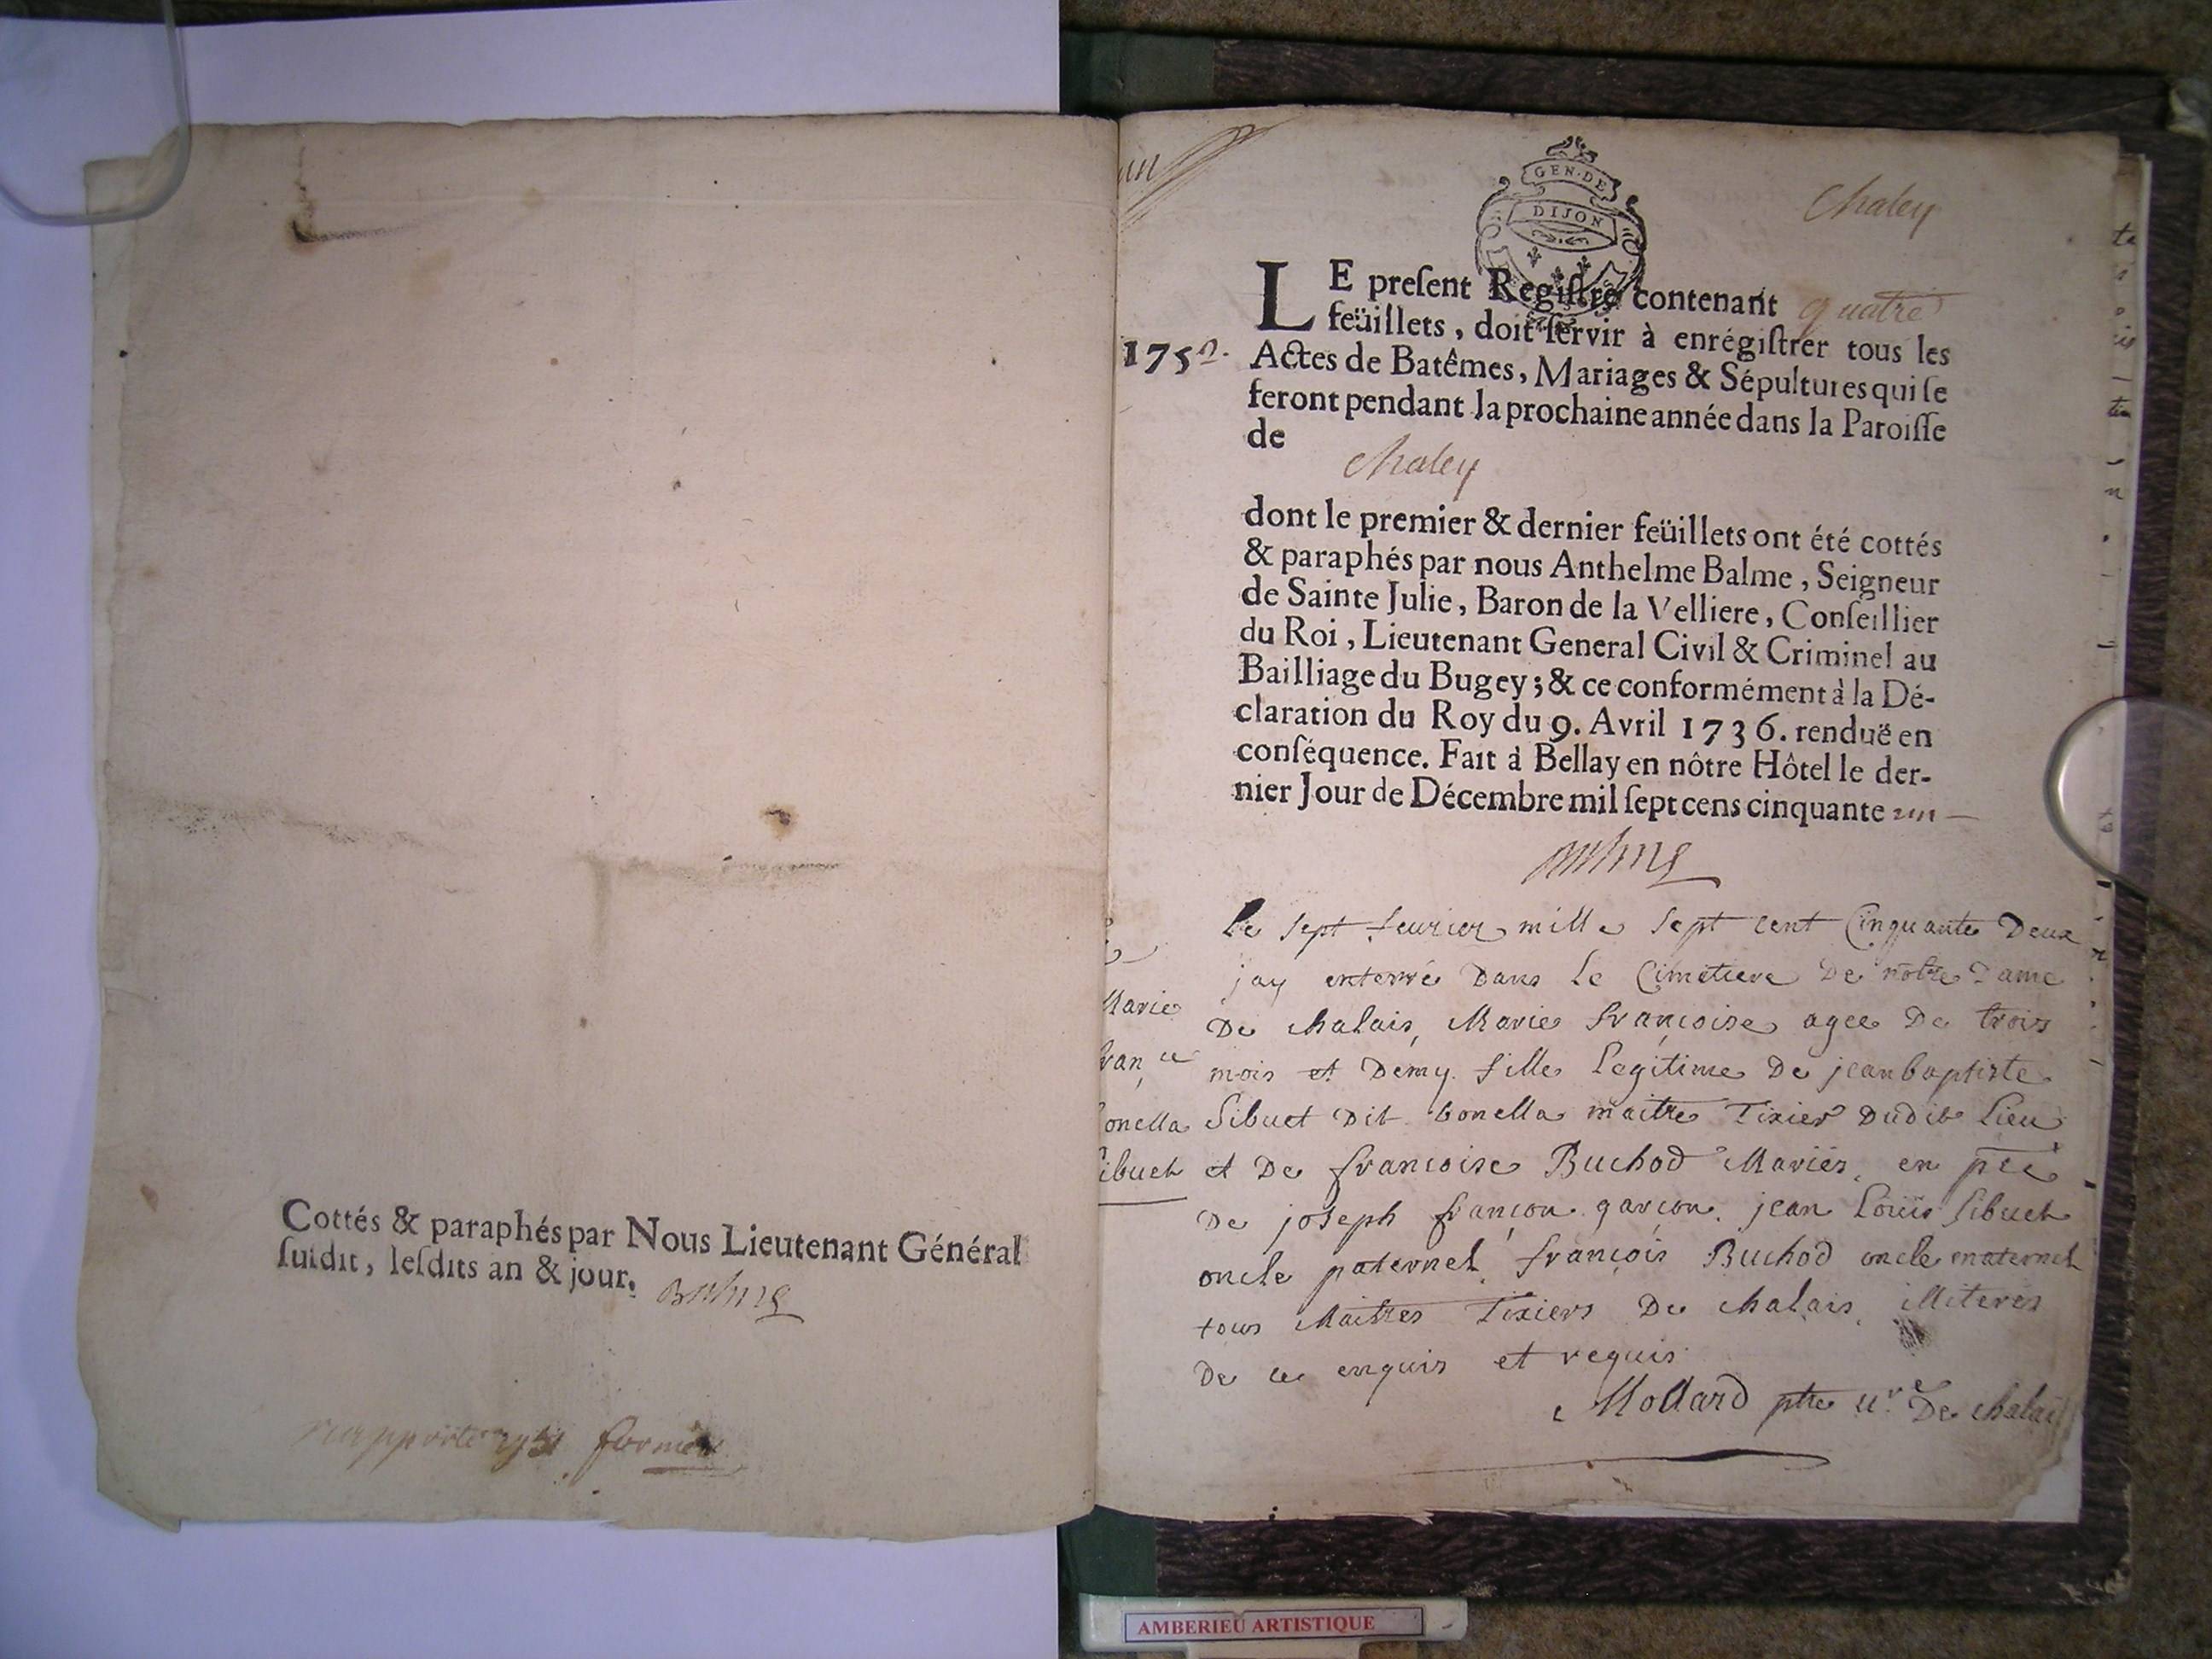 Cottés & paraphés par Nous Lieutenant Général
ſuſdit, leſdits an & jour.
Balme
un
GEN·DE
DIJON
Chaley
LE preſent Regiſtre contenant quatre
feüillets, doit ſervir à enrégiſtrer tous les
1752.
Actes de Batêmes, Mariages & Sépultures qui ſe
feront pendant la prochaine année dans la Paroiſſe
de
Chaley
dont le premier & dernier feüillets ont été cottés
& paraphés par nous Anthelme Balme, Seigneur
de Sainte Julie, Baron de la Velliere, Conſeillier
du Roi, Lieutenant General Civil & Criminel au
Bailliage du Bugey; & ce conformément à la Dé-
claration du Roy du 9. Avril 1736. renduë en
conſéquence. Fait à Bellay en nôtre Hôtel le der-
nier Jour de Décembre mil ſept cens cinquante un
Balme
Le sept feurier mille sept cent Cinquante Deux
jay enterré Dans Le Cimetiere De nôtre Dame
Marie
De Chalais, Marie françoise agee De trois
fran ce
mois et Demy fille Legitime De jean baptiste
bonella
Sibuet Dit bonella maitre Tixier Dudit Lieu
Sibuet
et De francoise Buchod Mariés, en pce
De joseph françon garçon, jean Loüis Sibuet
oncle paternel, françois Buchod oncle maternel
tous Maitres Tixiers De Chalais, illiterés
De ce enquis et requis
Mollard ptre ur De Chalais
AMBERIEU ARTISTIQUE